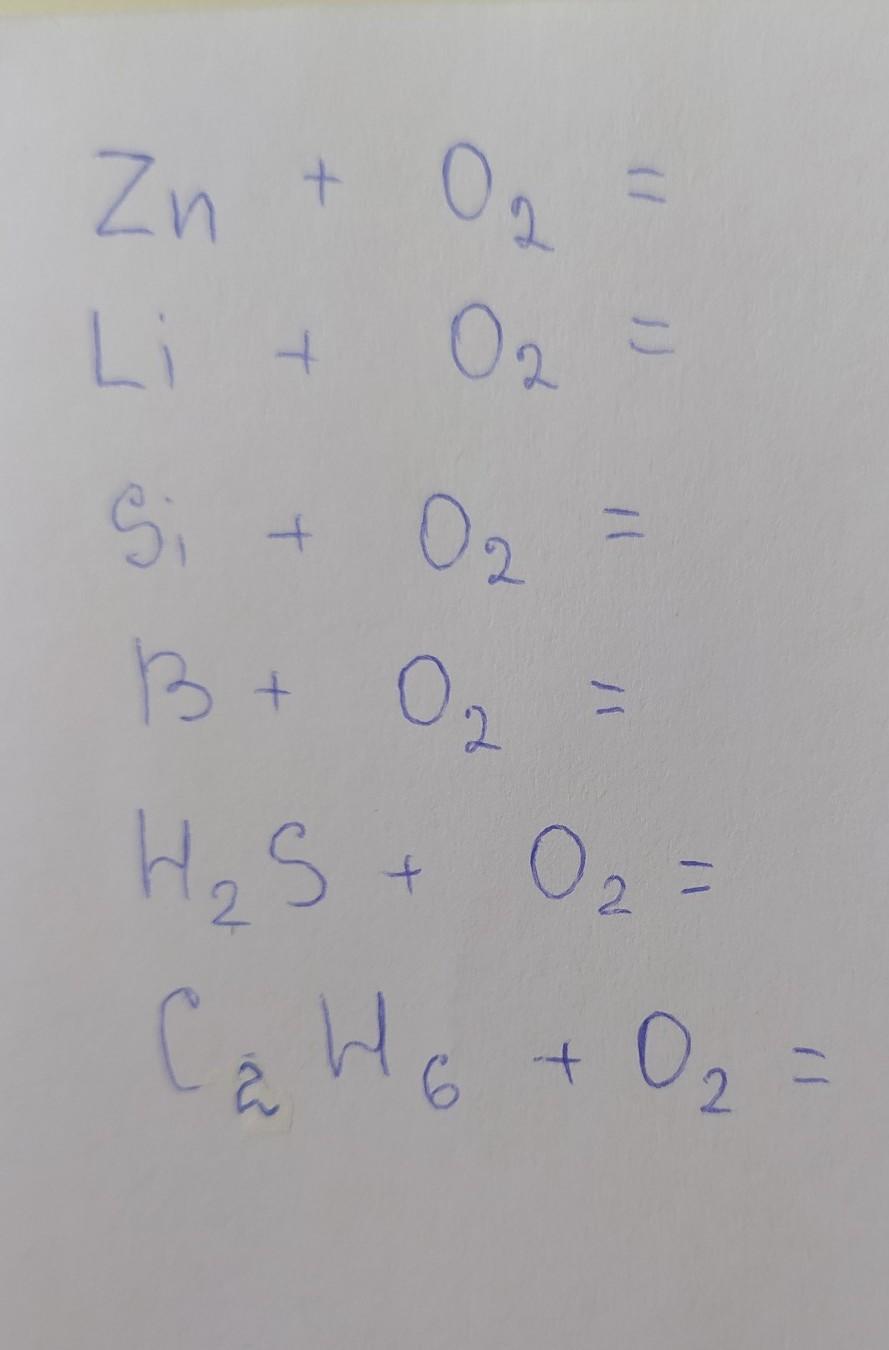 Zn + O₂ =
Li + O₂ =
Si + O₂ =
B + O₂ =
H₂S + O₂ =
C₂H₆ + O₂ =